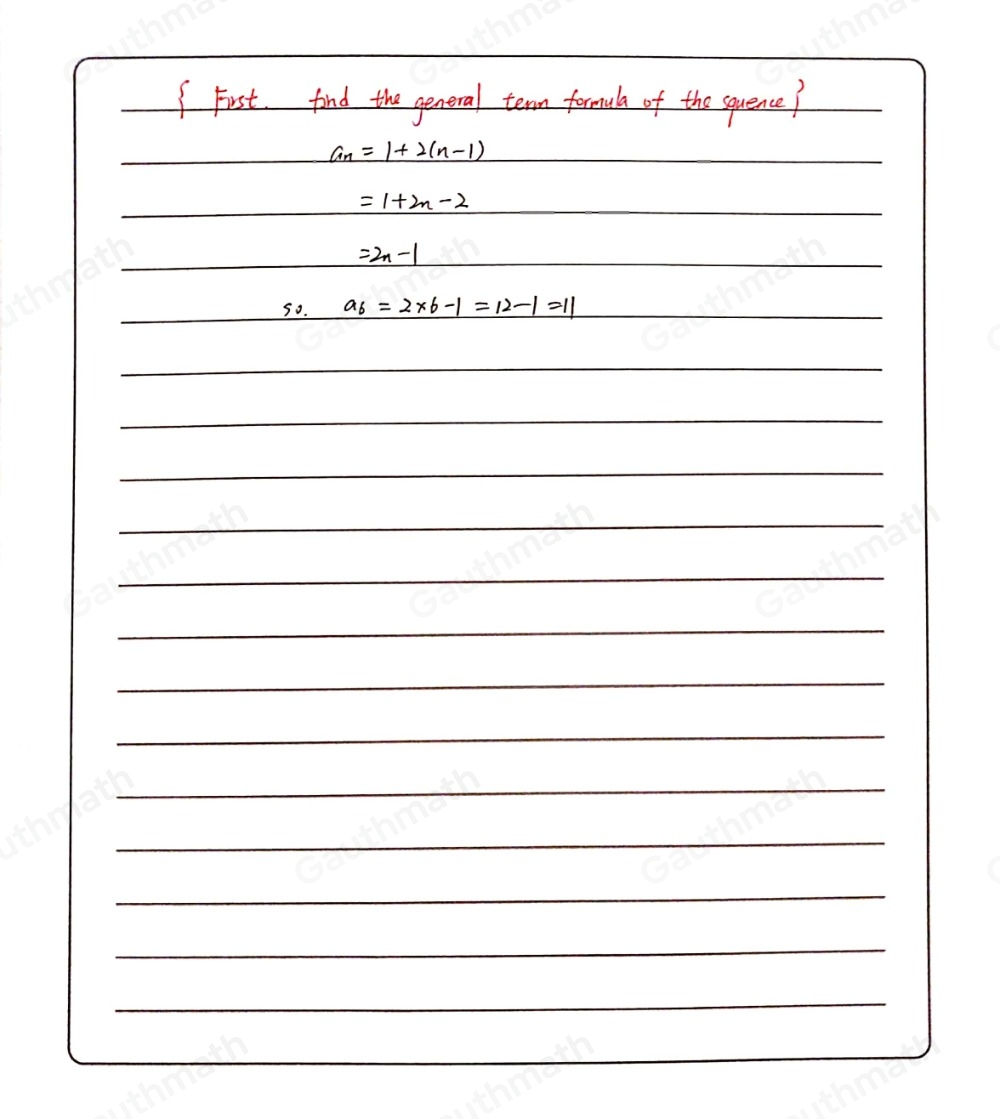 { First. find the general term formula of the squence}
an = 1+2(n-1)
= 1+2n-2
=2n-1
so. a6 = 2×6-1 =12-1=11
Gauthmath